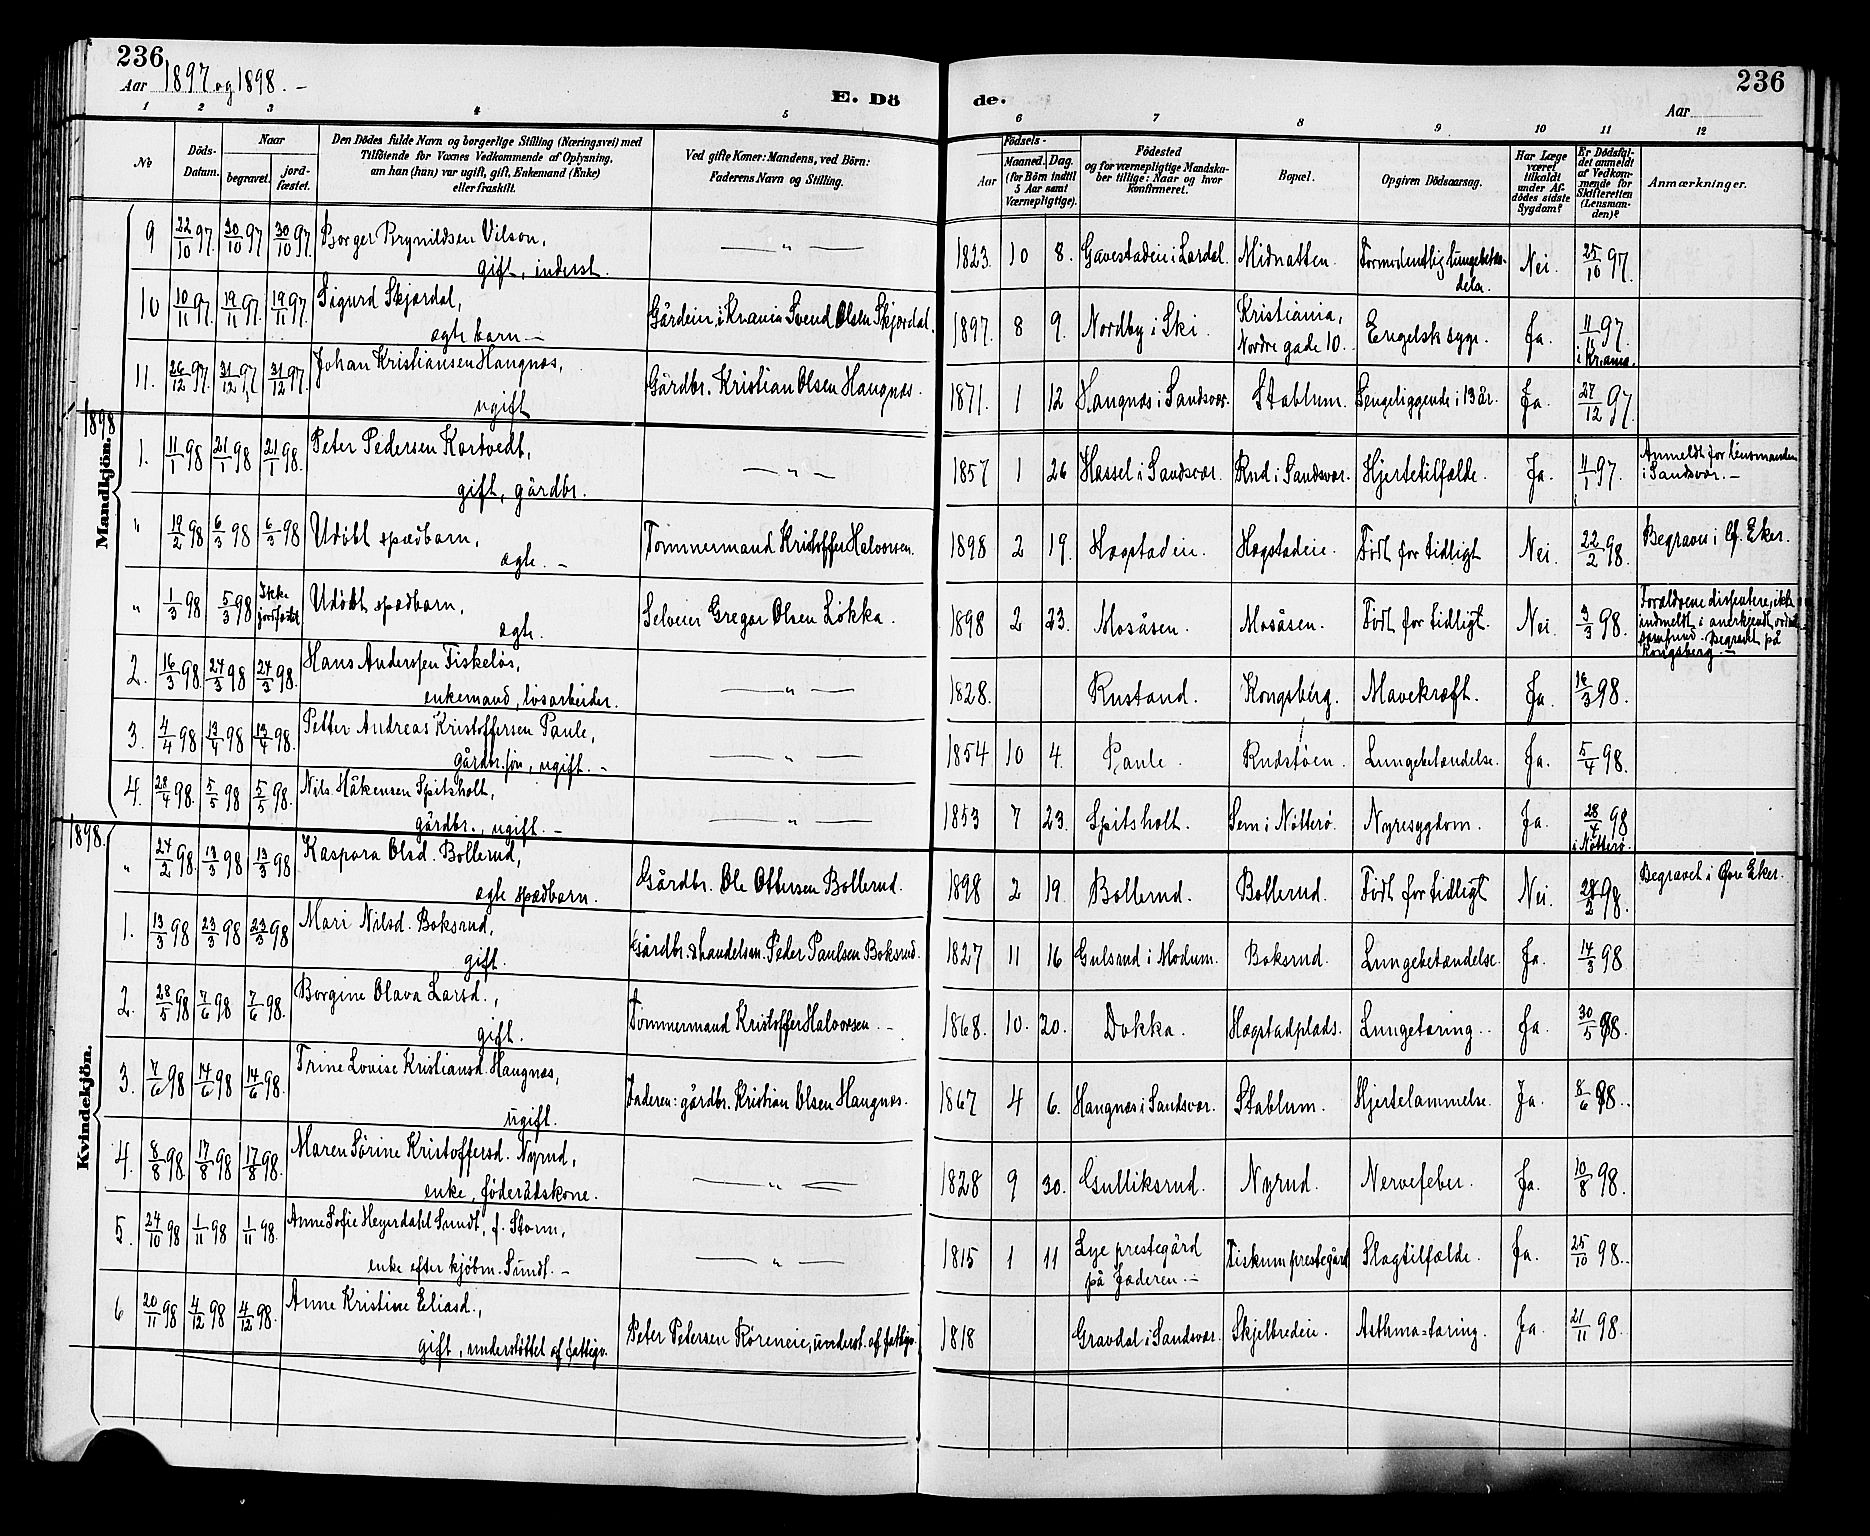 236
Aar 1897 og 1898. –
E. Dö
de.
236
Aar
1 2 3 4 5 6 7 8 9 10 11 12
No
Döds-Datum.
Naar
begravet.
jord-fæstet.
Den Dödes fulde Navn og borgerlige Stilling (Næringsvei) med
Tilföiende for Voxnes Vedkommende af Oplysning,
om han (hun) var ugift, gift, Enkemand (Enke)
eller fraskilt.
Ved gifte Koner: Mandens, ved Börn:
Faderens Navn og Stilling.
Födsels-
Aar
Maaned. Dag.
(for Börn indtil
5 Aar samt
Værnepligtige).
Födested
og for værnepligtige Mandska-
ber tillige: Naar og hvor
konfirmeret.
Bopæl.
Opgiven Dödsaarsag.
Har Læge
været
tilkaldt
under Af-
dödes sidste
Sygdom?
Er Dödsfal-
det anmeldt
af Vedkom-
mende for
Skifteretten
(Lensman-
den)?
Anmærkninger.
9 22/10 97. 30/10 97 30/10 97. Borger Brynildsen Vilson, — " — 1823. 10 8. Gavestadeie i Lardal. Midnatten. Formodentlig lungebetæn- Nei. 25/10 97.
gift, inderst. delse.
10 10/11 97. 19/11 97. 19/11 97. Sigurd Skjørdal, Gårdeier i Krania Svend Olsen Skjørdal. 1897. 8 9. Nordby i Ski. Kristiania, Engelsk syge. Ja. 11/11 97.
ægte barn — Nordre gade 10. i Kr.ania.
11. 26/12 97. 31/12 97 31/12 97. Johan Kristiansen Haugnæs, Gårdbr. Kristian Olsen Haugnæs. 1871. 1 12 Haugnæs i Sandsvær. Stablum. Sengeliggende i 13 år. Ja. 27/12 97.
ugift
1898
Mandkjön.
1. 11/1 98 21/1 98 21/1 98. Peter Pedersen Kortvedt, — " — 1857 1 26 Hassel i Sandsvær. Rud i Sandsvær. Hjertetilfælde. Ja. 11/1 97. Anmeldt for lensmanden
gift, gårdbr. i Sandsvær. —
" 19/2 98 6/3 98 6/3 98 Udöbt spædbarn, Tømmermand Kristoffer Halvorsen. 1898 2 19. Hogstadeie. Hogstadeie. Født for tidligt Nei. 22/2 98. Begraven i Øf. Eker.
ægte. —
" 1/3 98 5/3 98 Ikke jordfæstet Udöbt spædbarn, Selveier Gregar Olsen Løkka. 1898 2 23. Mosåsen. Mosåsen. Født for tidligt. Nei. 3/3 98. Forældrene dissentere, ikke
ægte. indmeldt i anerkjendt
samfund. Begravet på
Kongsberg. —
2. 16/3 98. 24/3 98 24/3 98. Hans Anderssen Fiskeløs, — " — 1828. Rustand. Kongsberg. Mavekræft. Ja. 16/3 98.
enkemand, løsarbeider.
3. 4/4 98 13/4 98 13/4 98. Petter Andreas Kristoffersen Paule, — " — 1854 10 4. Paule. Rudstøen. Lungebetændelse. Ja. 5/4 98.
gårdbr.søn, ugift. –
4. 28/4 98. 5/5 98 5/5 98. Nils Håkensen Spitsholt, — " — 1853 7 23. Spitsholt. Sem i Nötterö. Nyresygdom. Ja. 28/4 98
gårdbr., ugift. – i Nötterö.
1898.
Kvindekjön.
" 24/2 98 13/3 98 13/3 98 Kaspara Olsd. Bollerud, Gårdbr. Ole Ottersen Bollerud. 1898 2 19. Bollerud. Bollerud. Født for tidligt Nei. 28/2 98. Begravet i Øvre Eker.
ægte spædbarn.
1. 13/3 98 23/3 98 23/3 98 Mari Nilsd. Boksrud, Gårdbr. & handelsm. Peder Paulsen Boksrud. 1827 11 16 Gulsrud i Modum. Boksrud. Lungebetændelse. Ja. 14/3 98
gift.
2. 28/5 98 7/6 98 7/6 98. Borgine Olava Larsd., Tømmermand Kristoffer Halvorsen. – 1868. 10. 20. Dokka. Hogstadplads. Lungetæring. Ja. 30/5 98.
gift.
3. 7/6 98 14/6 98 14/6 98. Trine Lovise Kristiansd. Haugnæs, Faderen: gårdbr. Kristian Olsen Haugnæs. 1867 4 6. Haugnæs i Sandsvær. Stablum. Hjertelammelse. Ja. 8/6 98.
ugift.
4. 8/8 98. 17/8 98 17/8 98. Maren Sørine Kristoffersd. Nyrud, — " — 1828 9 30. Gulliksrud. Nyrud. Nervefeber. Ja. 10/8 98.
enke, föderådskone.
5. 24/10 98 1/11 98 1/11 98. Anne Sofie Heyerdahl Sundt, f. Storm, — " — 1815 1 11 Lye prestegård Fiskum prestegård Slagtilfælde. Ja. 25/10 98.
enke efter kjøbm. Sundt. – på Jæderen. –
6 20/11 98 4/12 98 4/12 98. Anne Kristine Eliasd., Peter Petersen Röreneie, underst. af fattigv. 1818 Gravdal i Sandsvær. Skjelbredeie. Asthma-tæring. Ja. 21/11 98.
gift, understöttet af fattigv.